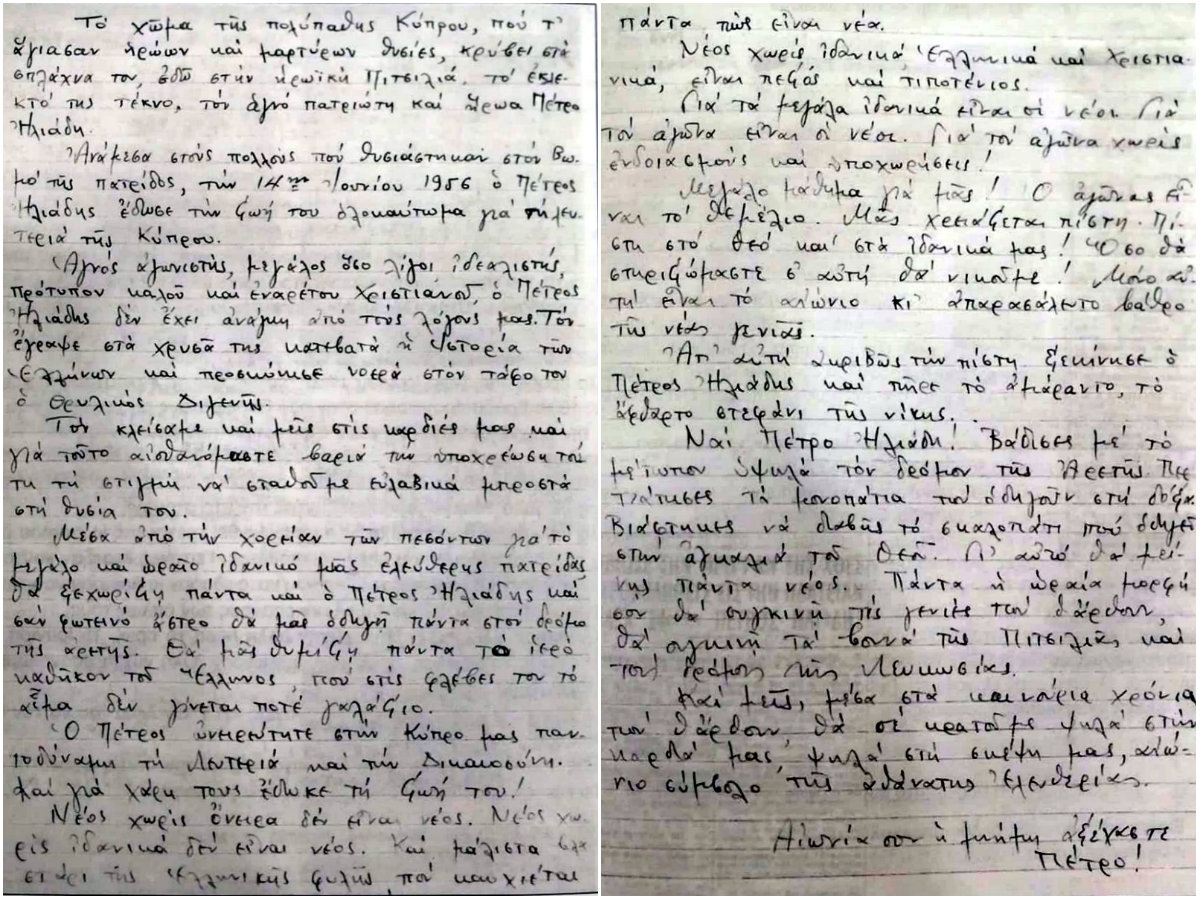 Τό χῶμα τῆς πολύπαθης Κύπρου, πού τ'
ἅγιασαν ἡρώων καί μαρτύρων θυσίες, κρύβει στά
σπλάχνα του, ἐδῶ στήν ἡρωϊκή Πιτσιλιά, τό ἐκλε-
κτό της τέκνο, τόν ἁγνό πατριώτη καί ἥρωα Πέτρο
Ἠλιάδη.
Ἀνάμεσα στούς πολλούς πού θυσιάστηκαν στόν βω-
μό τῆς πατρίδος, τήν 14ην Ἰουνίου 1956 ὁ Πέτρος
Ἠλιάδης ἔδωσε τήν ζωή του ὁλοκαύτωμα γιά τή λευ-
τεριά τῆς Κύπρου.
Ἁγνός ἀγωνιστής, μεγάλος ὅσο λίγοι ἰδεαλιστής,
πρότυπον καλοῦ καί ἐναρέτου Χριστιανοῦ, ὁ Πέτρος
Ἠλιάδης δέν ἔχει ἀνάγκη ἀπό τούς λόγους μας. Τόν
ἔγραψε στά χρυσᾶ της κατεβατά ἡ Ἱστορία τῶν
Ἑλλήνων καί προσκύνησε νοερά στόν τάφο του
ὁ θρυλικός Διγενής.
Τόν κλείσαμε καί μεῖς στίς καρδιές μας καί
γιά τοῦτο αἰσθανόμαστε βαριά τήν ὑποχρέωση τού-
τη τή στιγμή νά σταθοῦμε εὐλαβικά μπροστά
στή θυσία του.
Μέσα ἀπό τήν χορείαν τῶν πεσόντων γιά τό
μεγάλο καί ὡραῖο ἰδανικό μιᾶς ἐλεύθερης πατρίδας
θά ξεχωρίζη πάντα καί ὁ Πέτρος Ἠλιάδης καί
σάν φωτεινό ἄστρο θά μᾶς ὁδηγῆ πάντα στόν δρόμο
τῆς ἀρετῆς. Θά μᾶς θυμίζη πάντα τό ἱερό
καθῆκον τοῦ Ἕλληνος, πού στίς φλέβες του τό
αἷμα δέν γίνεται ποτέ γαλάζιο.
Ὁ Πέτρος ὀνειρεύτητε στήν Κύπρο μας παν-
τοδύναμη τή Λευτεριά καί τήν Δικαιοσύνη.
Καί γιά χάρη τους ἔδωκε τή ζωή του!
Νέος χωρίς ὄνειρα δέν εἶναι νέος. Νέος χω-
ρίς ἰδανικά δέν εἶναι νέος. Καί μάλιστα βλα-
στάρι τῆς Ἑλληνικῆς φυλῆς, πού καυχιέται
πάντα πώς εἶναι νέα.
Νέος χωρίς ἰδανικά, Ἑλληνικά καί Χριστια-
νικά, εἶναι πεζός καί τιποτένιος.
Γιά τά μεγάλα ἰδανικά εἶναι οἱ νέοι. Γιά
τόν ἀγῶνα εἶναι οἱ νέοι. Γιά τόν ἀγῶνα χωρίς
ἐνδοιασμούς καί ὑποχωρήσεις!
Μεγάλο μάθημα γιά μᾶς! Ὁ ἀγῶνας εἶ-
ναι τό θεμέλιο. Μᾶς χρειάζεται πίστη. Πί-
στη στό Θεό καί στά ἰδανικά μας! Ὅσο θά
στηριζώμαστε σ' αὐτή θά νικοῦμε! Μόνο αὐ-
τή εἶναι τό αἰώνιο κι' ἀπαρασάλευτο βάθρο
τῆς νέας γενιᾶς.
Ἀπ' αὐτή ἀκριβῶς τήν πίστη ξεκίνησε ὁ
Πέτρος Ἠλιάδης καί πῆρε τό ἀμάραντο, τό
ἄφθαρτο στεφάνι τῆς νίκης.
Ναί Πέτρο Ἠλιάδη! Βάδισες μέ τό
μέτωπον ὑψηλά τόν δρόμον τῆς Ἀρετῆς. Περ-
πάτησες τά μονοπάτια πού ὁδηγοῦν στή δόξα.
Βιάστηκες νά διαβῆς τό σκαλοπάτι πού ὁδηγεῖ
στήν ἀγκαλιά τοῦ Θεοῦ. Γι' αὐτό θά μεί-
νης πάντα νέος. Πάντα ἡ ὡραία μορφή
σου θά συγκινῆ τίς γενιές πού θἄρθουν,
θά συγκινῆ τά βουνά τῆς Πιτσιλιᾶς καί
τούς δρόμους τῆς Λευκωσίας.
Καί μεῖς, μέσα στά καινούρια χρόνια
πού θἄρθουν, θά σέ κρατοῦμε ψηλά στήν
καρδιά μας, ψηλά στή σκέψη μας, αἰώ-
νιο σύμβολο τῆς ἀθάνατης Ἐλευθερίας.
Αἰωνία σου ἡ μνήμη ἀξέχαστε
Πέτρο!